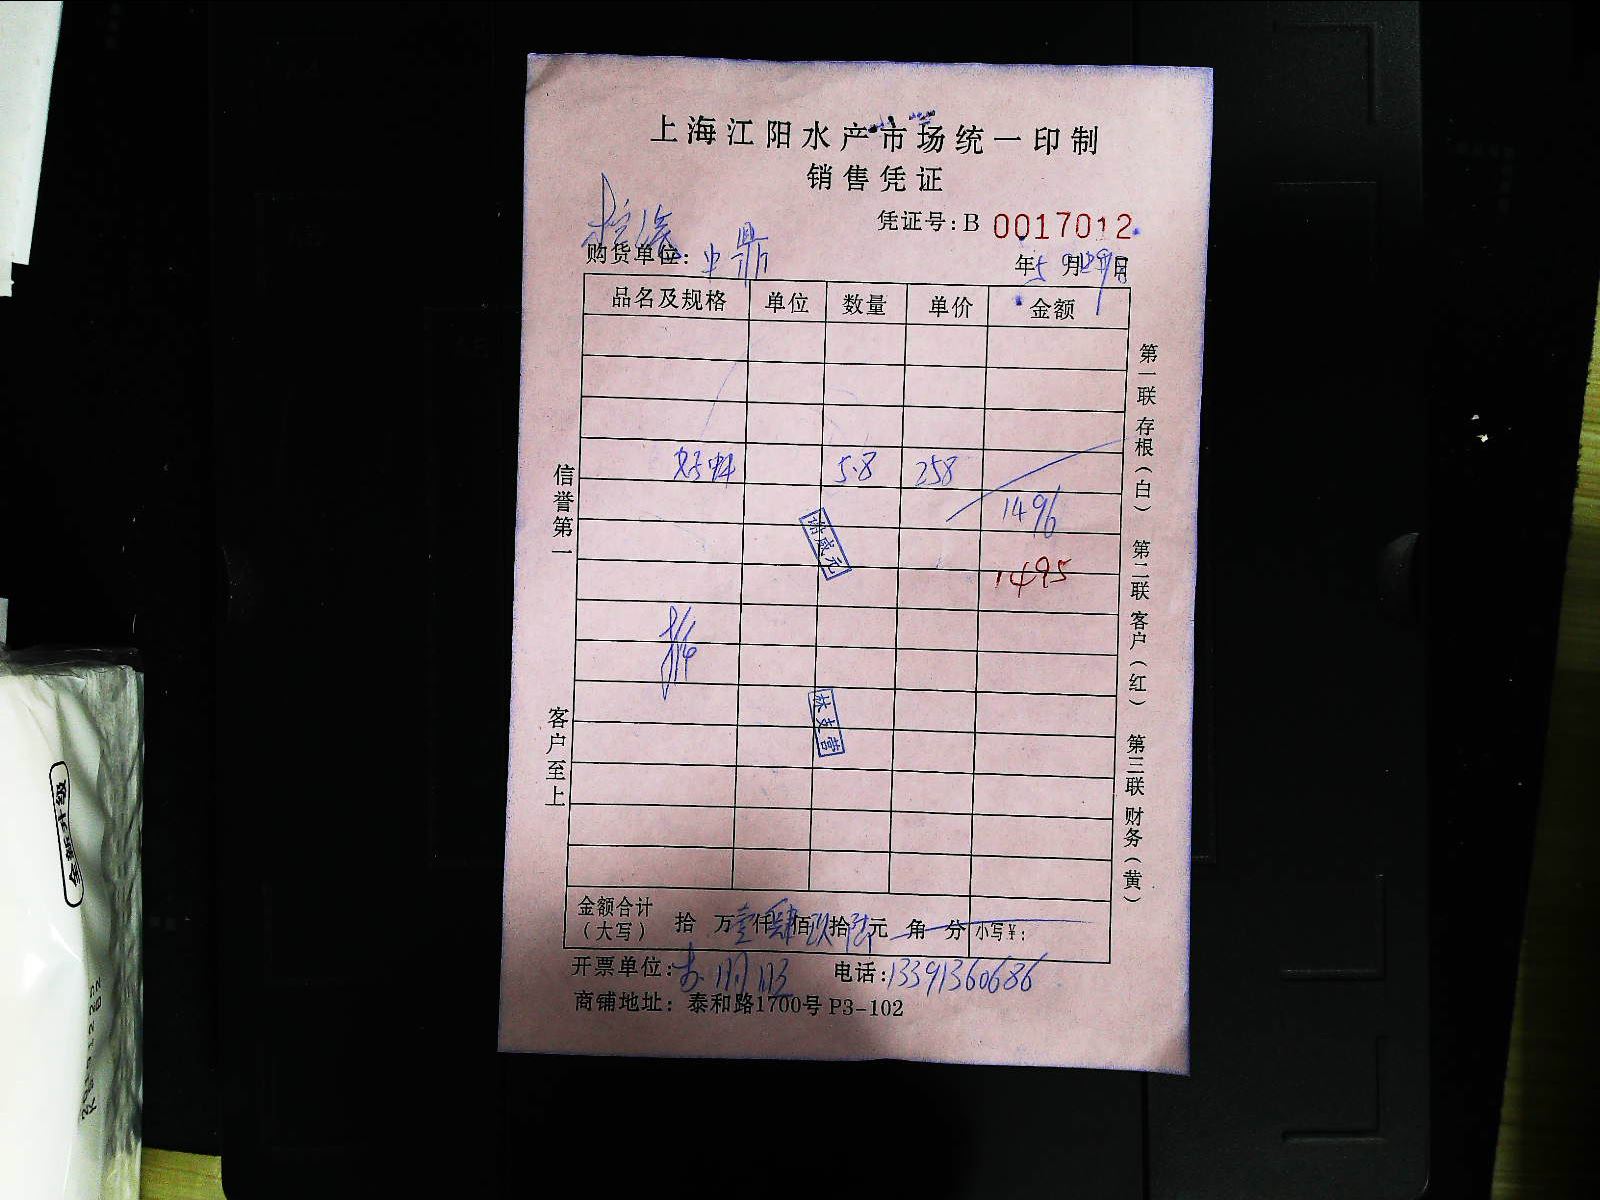 上海江阳水产市场统一印制
销售凭证
凭证号:B 0017012
购货单位: 中鼎
年5月29日
品名及规格 单位 数量 单价 金额
5.8 258
1496
1495
林友营
信誉第一
客户至上
第一联存根(白) 第二联客户(红) 第三联财务(黄)
金额合计(大写) 拾 万壹仟肆佰玖拾陆元 角 分 小写¥:
开票单位: 电话:13391360686
商铺地址: 泰和路1700号 P3-102
全新升级